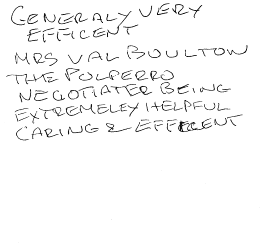 GENERALY VERY
EFFICENT
MRS VAL BOULTON
THE POLPERRO
NEGOTIATER BEING
EXTREMELEY HELPFUL
CARING & EFFECENT